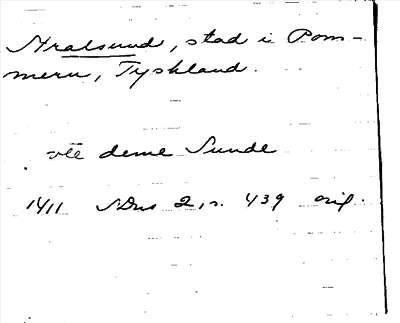 Stralsund, stad i Pom-
mern, Tyskland.
vte deme Sunde
1411 SDns 2, s. 439 orig.